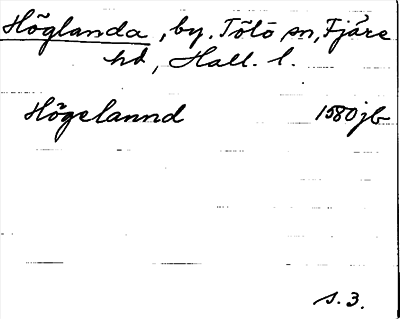 Höglanda, by. Tölö sn, Fjäre
hd, Hall. l.
Högelannd 1580 jb
s. 3.